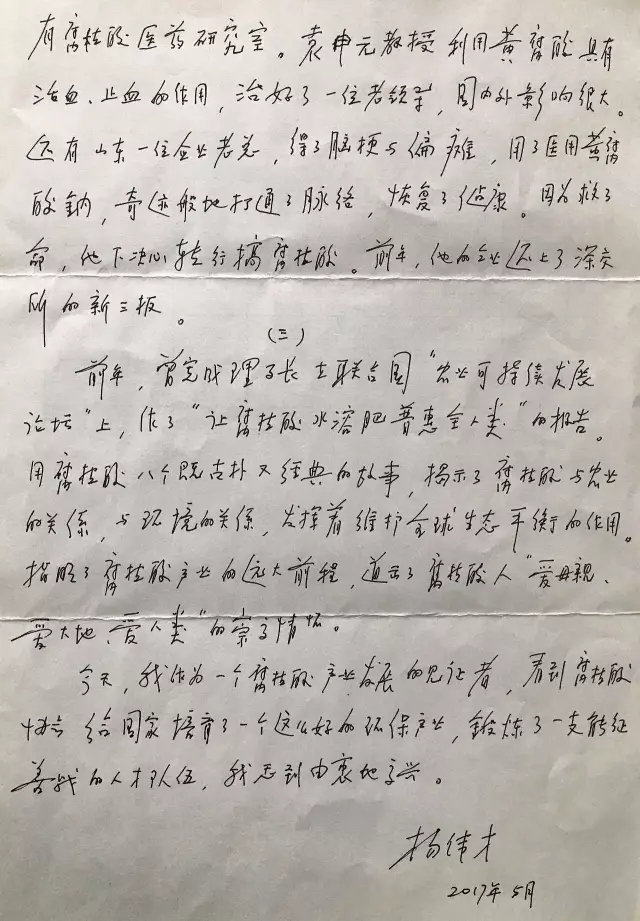 有腐植酸医药研究室。袁申元教授利用黄腐酸具有
活血、止血的作用，治好了一位老领导，国内外影响很大。
还有山东一位企业老总，得了脑梗与偏瘫，用了医用黄腐
酸鈉，奇迹般地打通了脉络，恢复了健康。因为救了
命，他下决心转行搞腐植酸。前年，他的企业还上了深交
所的新三板。
（三）
前年，曾宪成理事长在联合国“农业可持续发展
论坛”上，作了“让腐植酸水溶肥普惠全人类”的报告。
用腐植酸八个既古朴又经典的故事，揭示了腐植酸与农业
的关係，与环境的关係，发挥着维护全球生态平衡的作用。
指明了腐植酸产业的远大前程，道出了腐植酸人“爱母親、
爱大地、爱人类”的崇高情怀。
今天，我作为一个腐植酸产业发展的见证者，看到腐植酸
协会给国家培育了一个这么好的环保产业，鍛炼了一支能征
善战的人才队伍，我感到由衷地高兴。
杨伟才
2017年5月